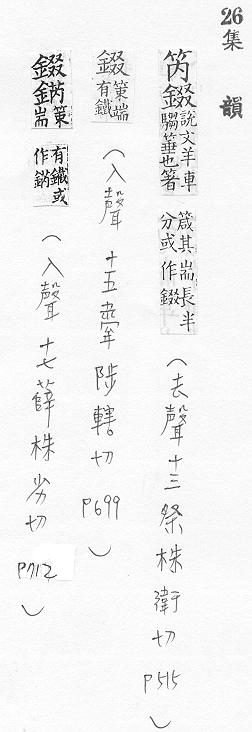 26
集韻
笍錣說文羊車騶箠也箸箴其耑長半分或作錣（去聲十三祭株衛切P515）
錣策端有鐵（入聲十五舝陟轄切P699）
錣笍鏥策有鐵或作鈉（入聲十七薛株劣切P712）